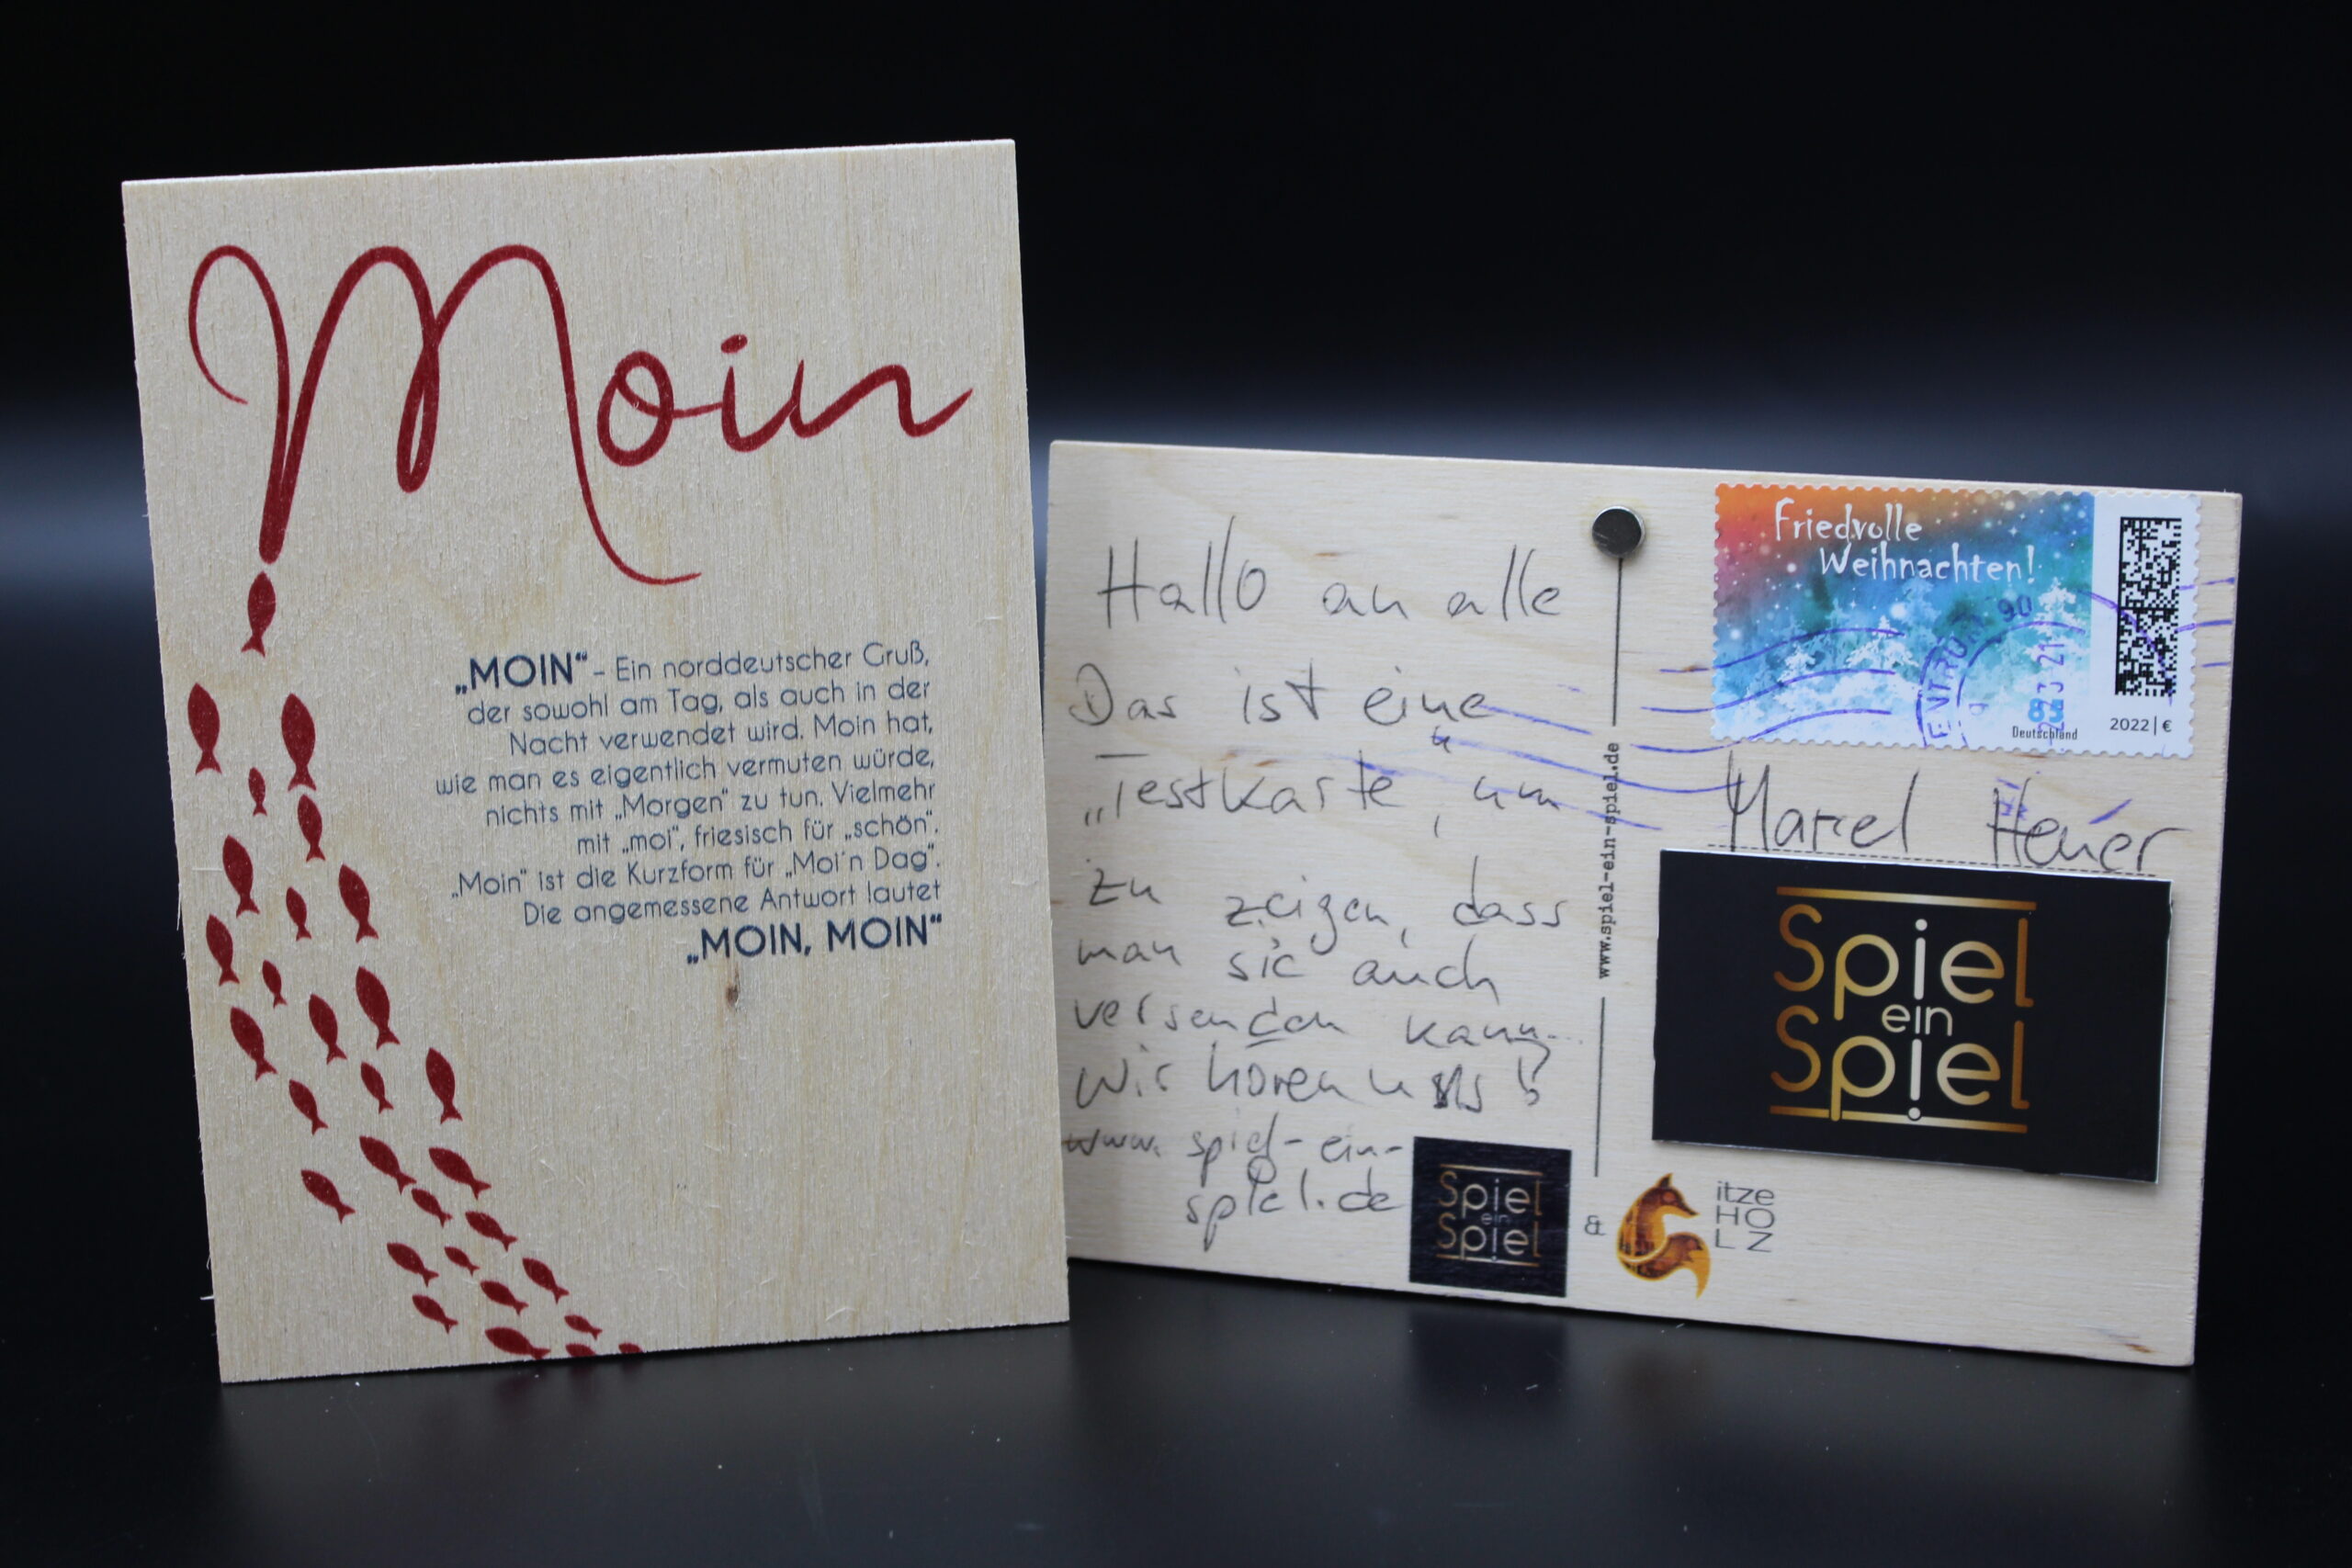 Moin
„MOIN“ – Ein norddeutscher Gruß,
der sowohl am Tag, als auch in der
Nacht verwendet wird. Moin hat,
wie man es eigentlich vermuten würde,
nichts mit „Morgen“ zu tun. Vielmehr
mit „moi“, friesisch für „schön“.
„Moin“ ist die Kurzform für „Moi´n Dag“.
Die angemessene Antwort lautet
„MOIN, MOIN“
Hallo an alle
Das ist eine
„Testkarte“, um
zu zeigen, dass
man sie auch
versenden kann.
Wir hören uns!
www.spiel-ein-
spiel.de
Spiel
ein
Spiel
www.spiel-ein-spiel.de
&
itze
HO
LZ
Friedvolle
Weihnachten!
90
21
85
Deutschland
2022 | €
Marcel Heuer
Spiel
ein
Spiel